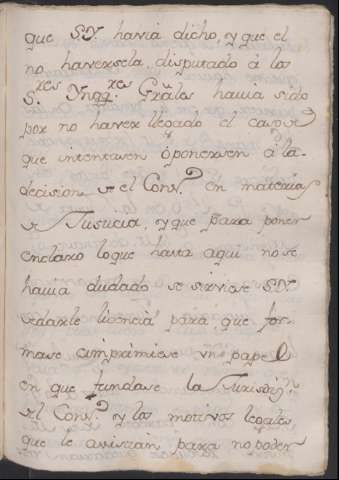 que S.Y. havia dicho, y que el
no haversela disputado á los
S.res Ynqq.res Grāles havia sido
por no haver llegado el caso de
que intentasen óponersen á la
decision de el Cons.o en materias
de Justicia, y que para poner
enclaro loque hasta aqui nose
havia dudado se sirviese S.Y.
dedarle licencia para que for-
mase imprimiese un papel
en que fundase la Jurisdi.n
del Cons.o y los motivos legales
que le asistian para no poder